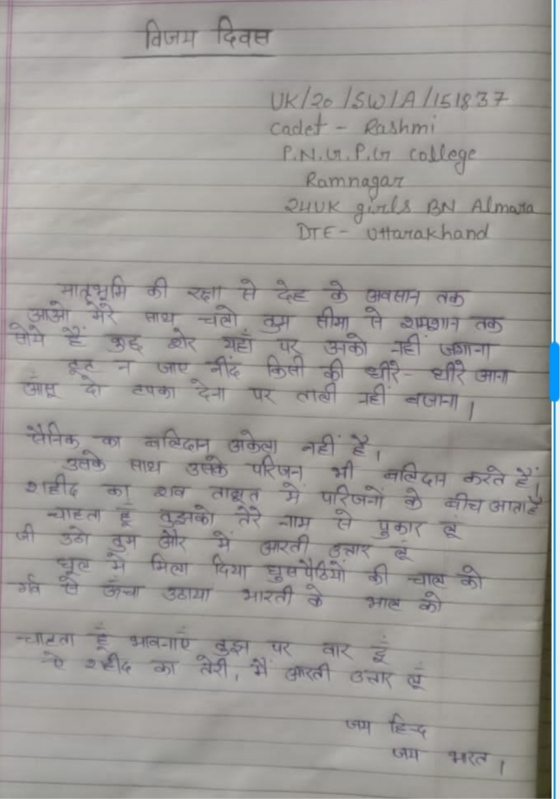 विजय दिवस
UK/20/SW/A/151837
Cadet - Rashmi
P.N.G.P.G College
Ramnagar
24UK girls BN Almora
DTE - Uttarakhand
मातृभूमि की रक्षा से देह के अवसान तक
आओ मेरे साथ चलो तुम सीमा से शमशान तक
सोये हैं कुछ शेर यहाँ पर उनको नहीं जगाना
टूट न जाए नींद किसी की धीरे-धीरे आना
आंसू दो टपका देना पर ताली नहीं बजाना।
सैनिक का बलिदान अकेला नहीं है।
उसके साथ उसके परिजन भी बलिदान करते हैं।
शहीद का शव ताबूत में परिजनों के बीच आता है
चाहता हूँ तुझको तेरे नाम से पुकार लूं
जी उठो तुम और मैं आरती उतार लूं
धूल में मिला दिया घुसपैठियों की चाल को
गर्व से ऊँचा उठाया भारती के भाल को
चाहता हूँ भावनाएं तुझ पर वार दूं
ऐ शहीद का तेरी, मैं आरती उतार लूं
जय हिन्द
जय भारत।